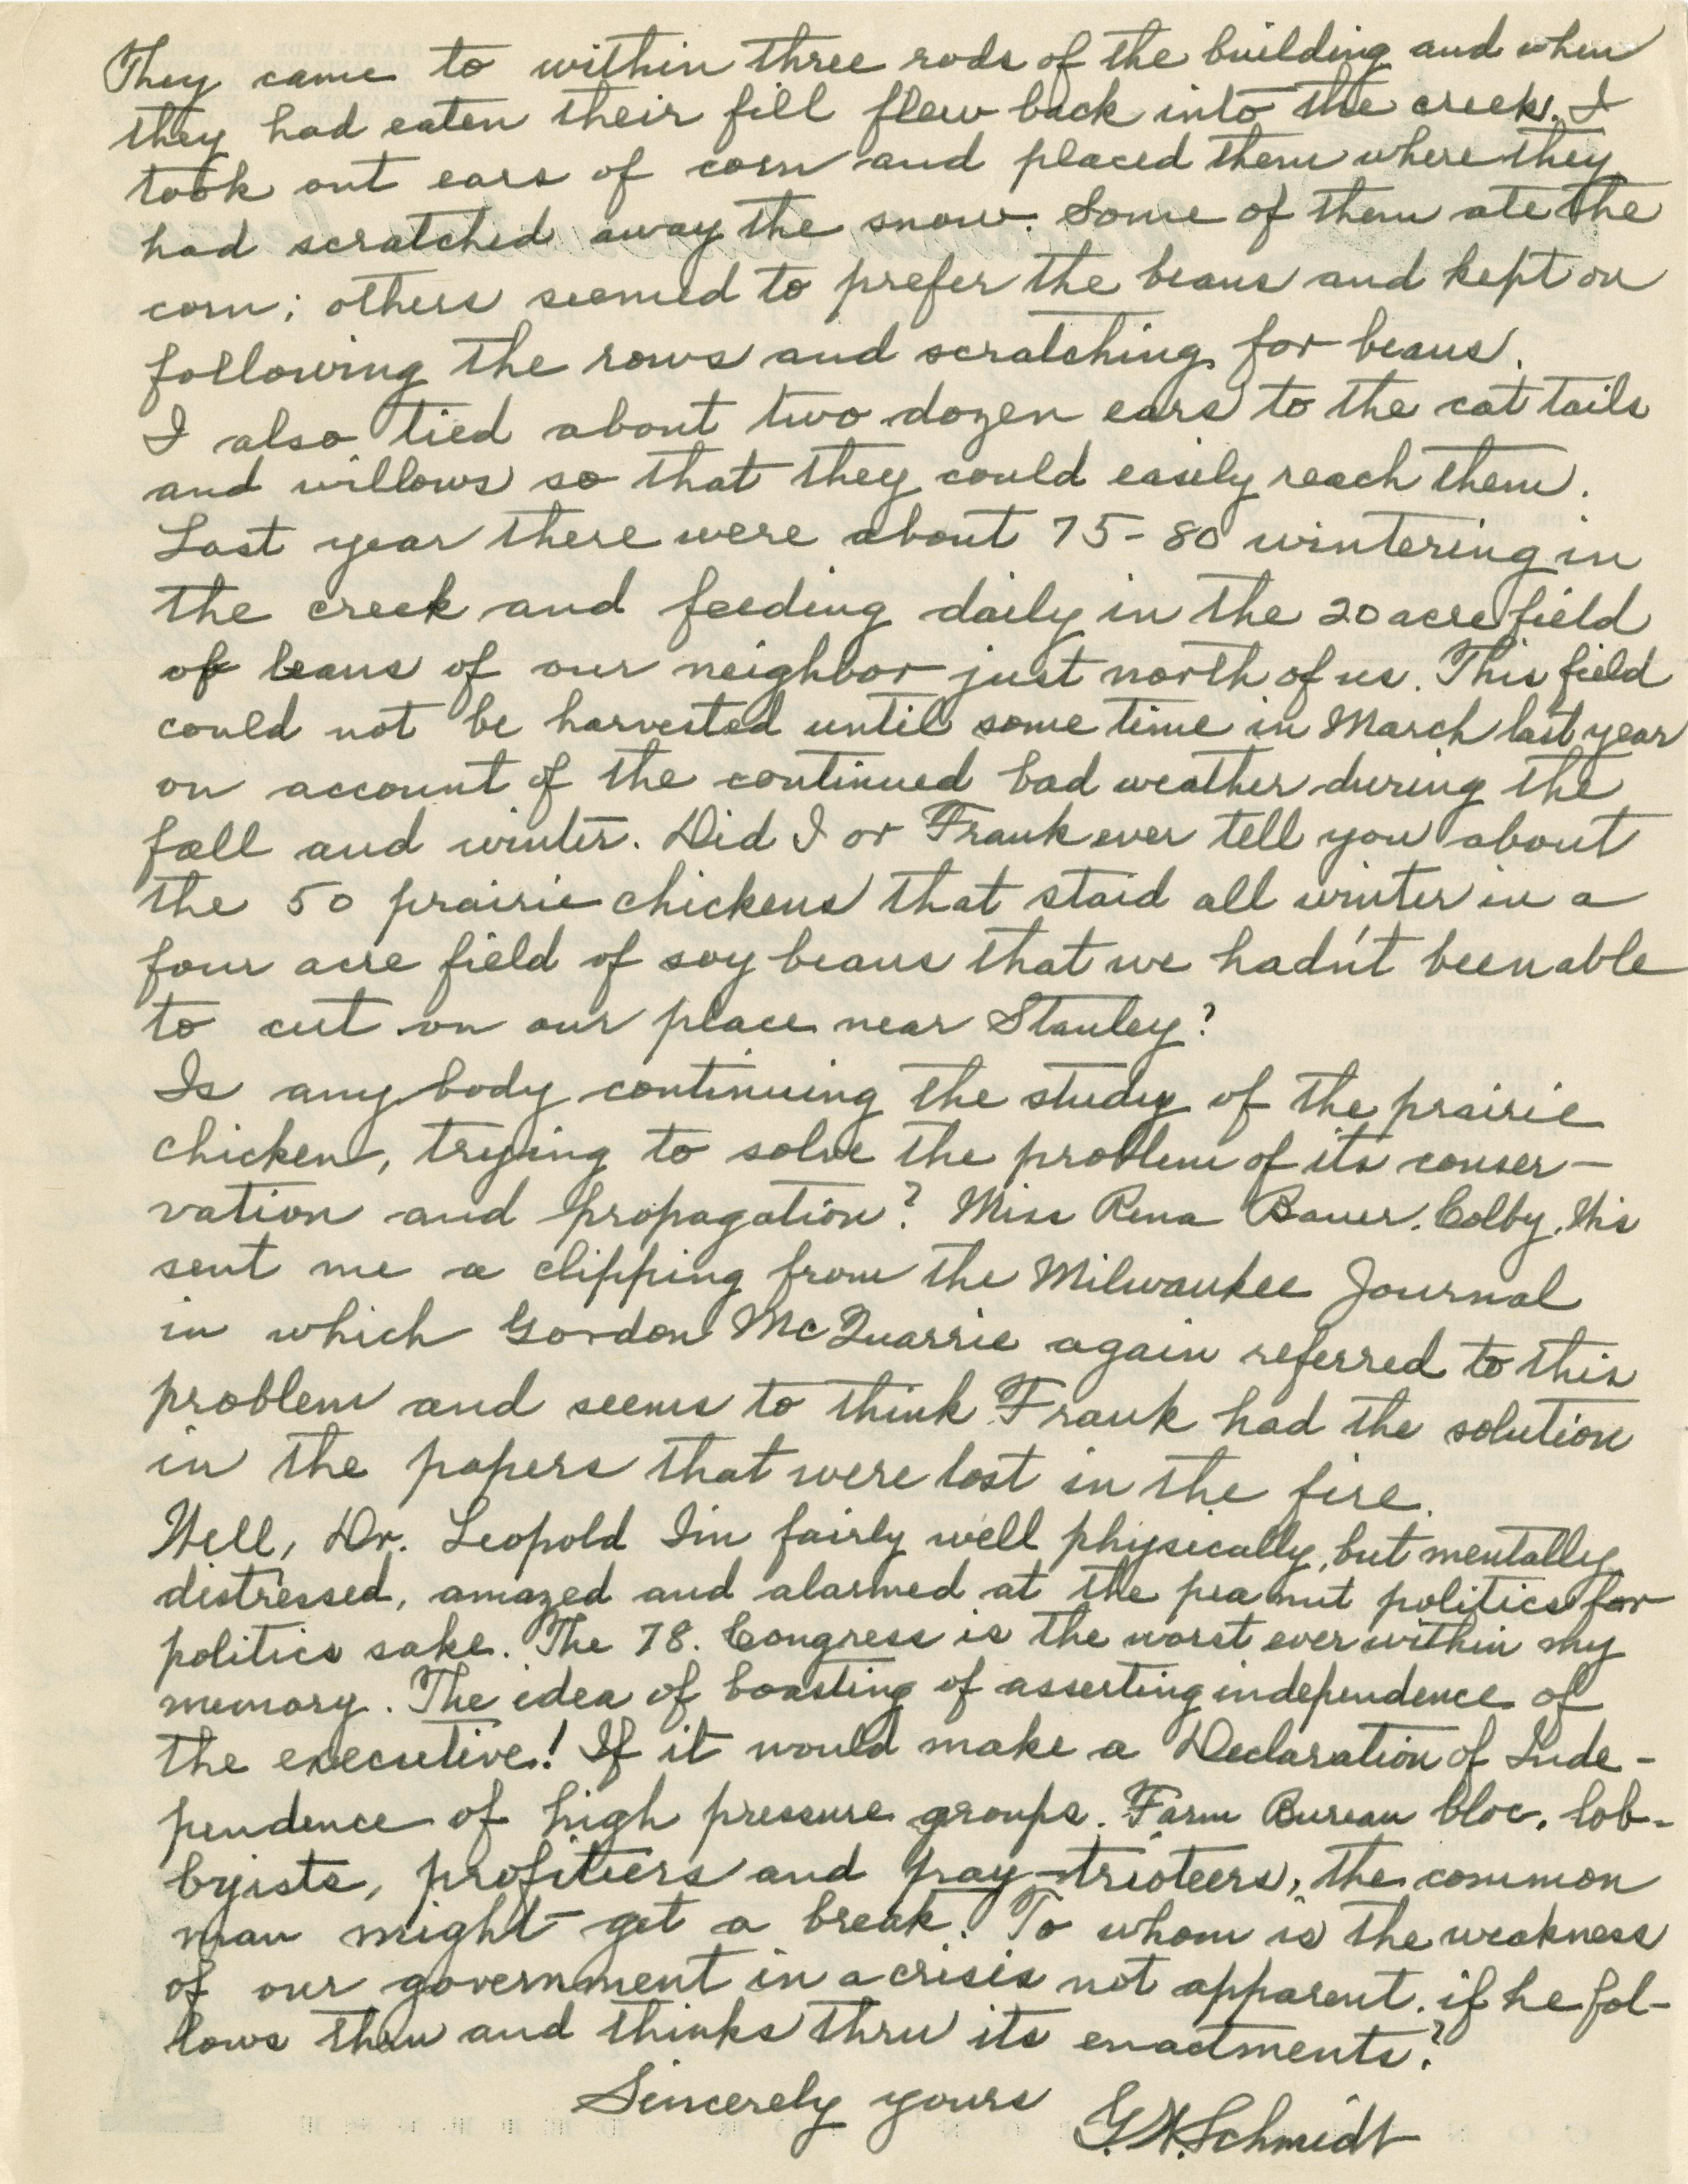 They came to within three rods of the building and when
they had eaten their fill flew back into the creek. I
took out ears of corn and placed them where they
had scratched away the snow. Some of them ate the
corn; others seemed to prefer the beans and kept on
following the rows and scratching for beans.
I also tied about two dozen ears to the cat tails
and willows so that they could easily reach them.
Last year there were about 75-80 wintering in
the creek and feeding daily in the 20 acre field
of beans of our neighbor just north of us. This field
could not be harvested until some time in March last year
on account of the continued bad weather during the
fall and winter. Did I or Frank ever tell you about
the 50 prairie chickens that staid all winter in a
four acre field of soy beans that we hadn't been able
to cut on our place near Stanley?
Is any body continuing the study of the prairie
chicken, trying to solve the problem of its conser-
vation and propagation? Miss Rena Bauer, Colby, Wis
sent me a clipping from the Milwaukee Journal
in which Gordon McQuarrie again referred to this
problem and seems to think Frank had the solution
in the papers that were lost in the fire.
Well, Dr. Leopold I'm fairly well physically, but mentally
distressed, amazed and alarmed at the peanut politics for
politics sake. The 78. Congress is the worst ever within my
memory. The idea of boasting of asserting independence of
the executive! If it would make a Declaration of Inde-
pendence of high pressure groups. Farm Bureau bloc, lob-
byists, profitiers and pay-trioteers, the common
man might get a break. To whom is the weakness
of our government in a crisis not apparent, if he fol-
lows thru and thinks thru its enactments?
Sincerely yours G.W. Schmidt